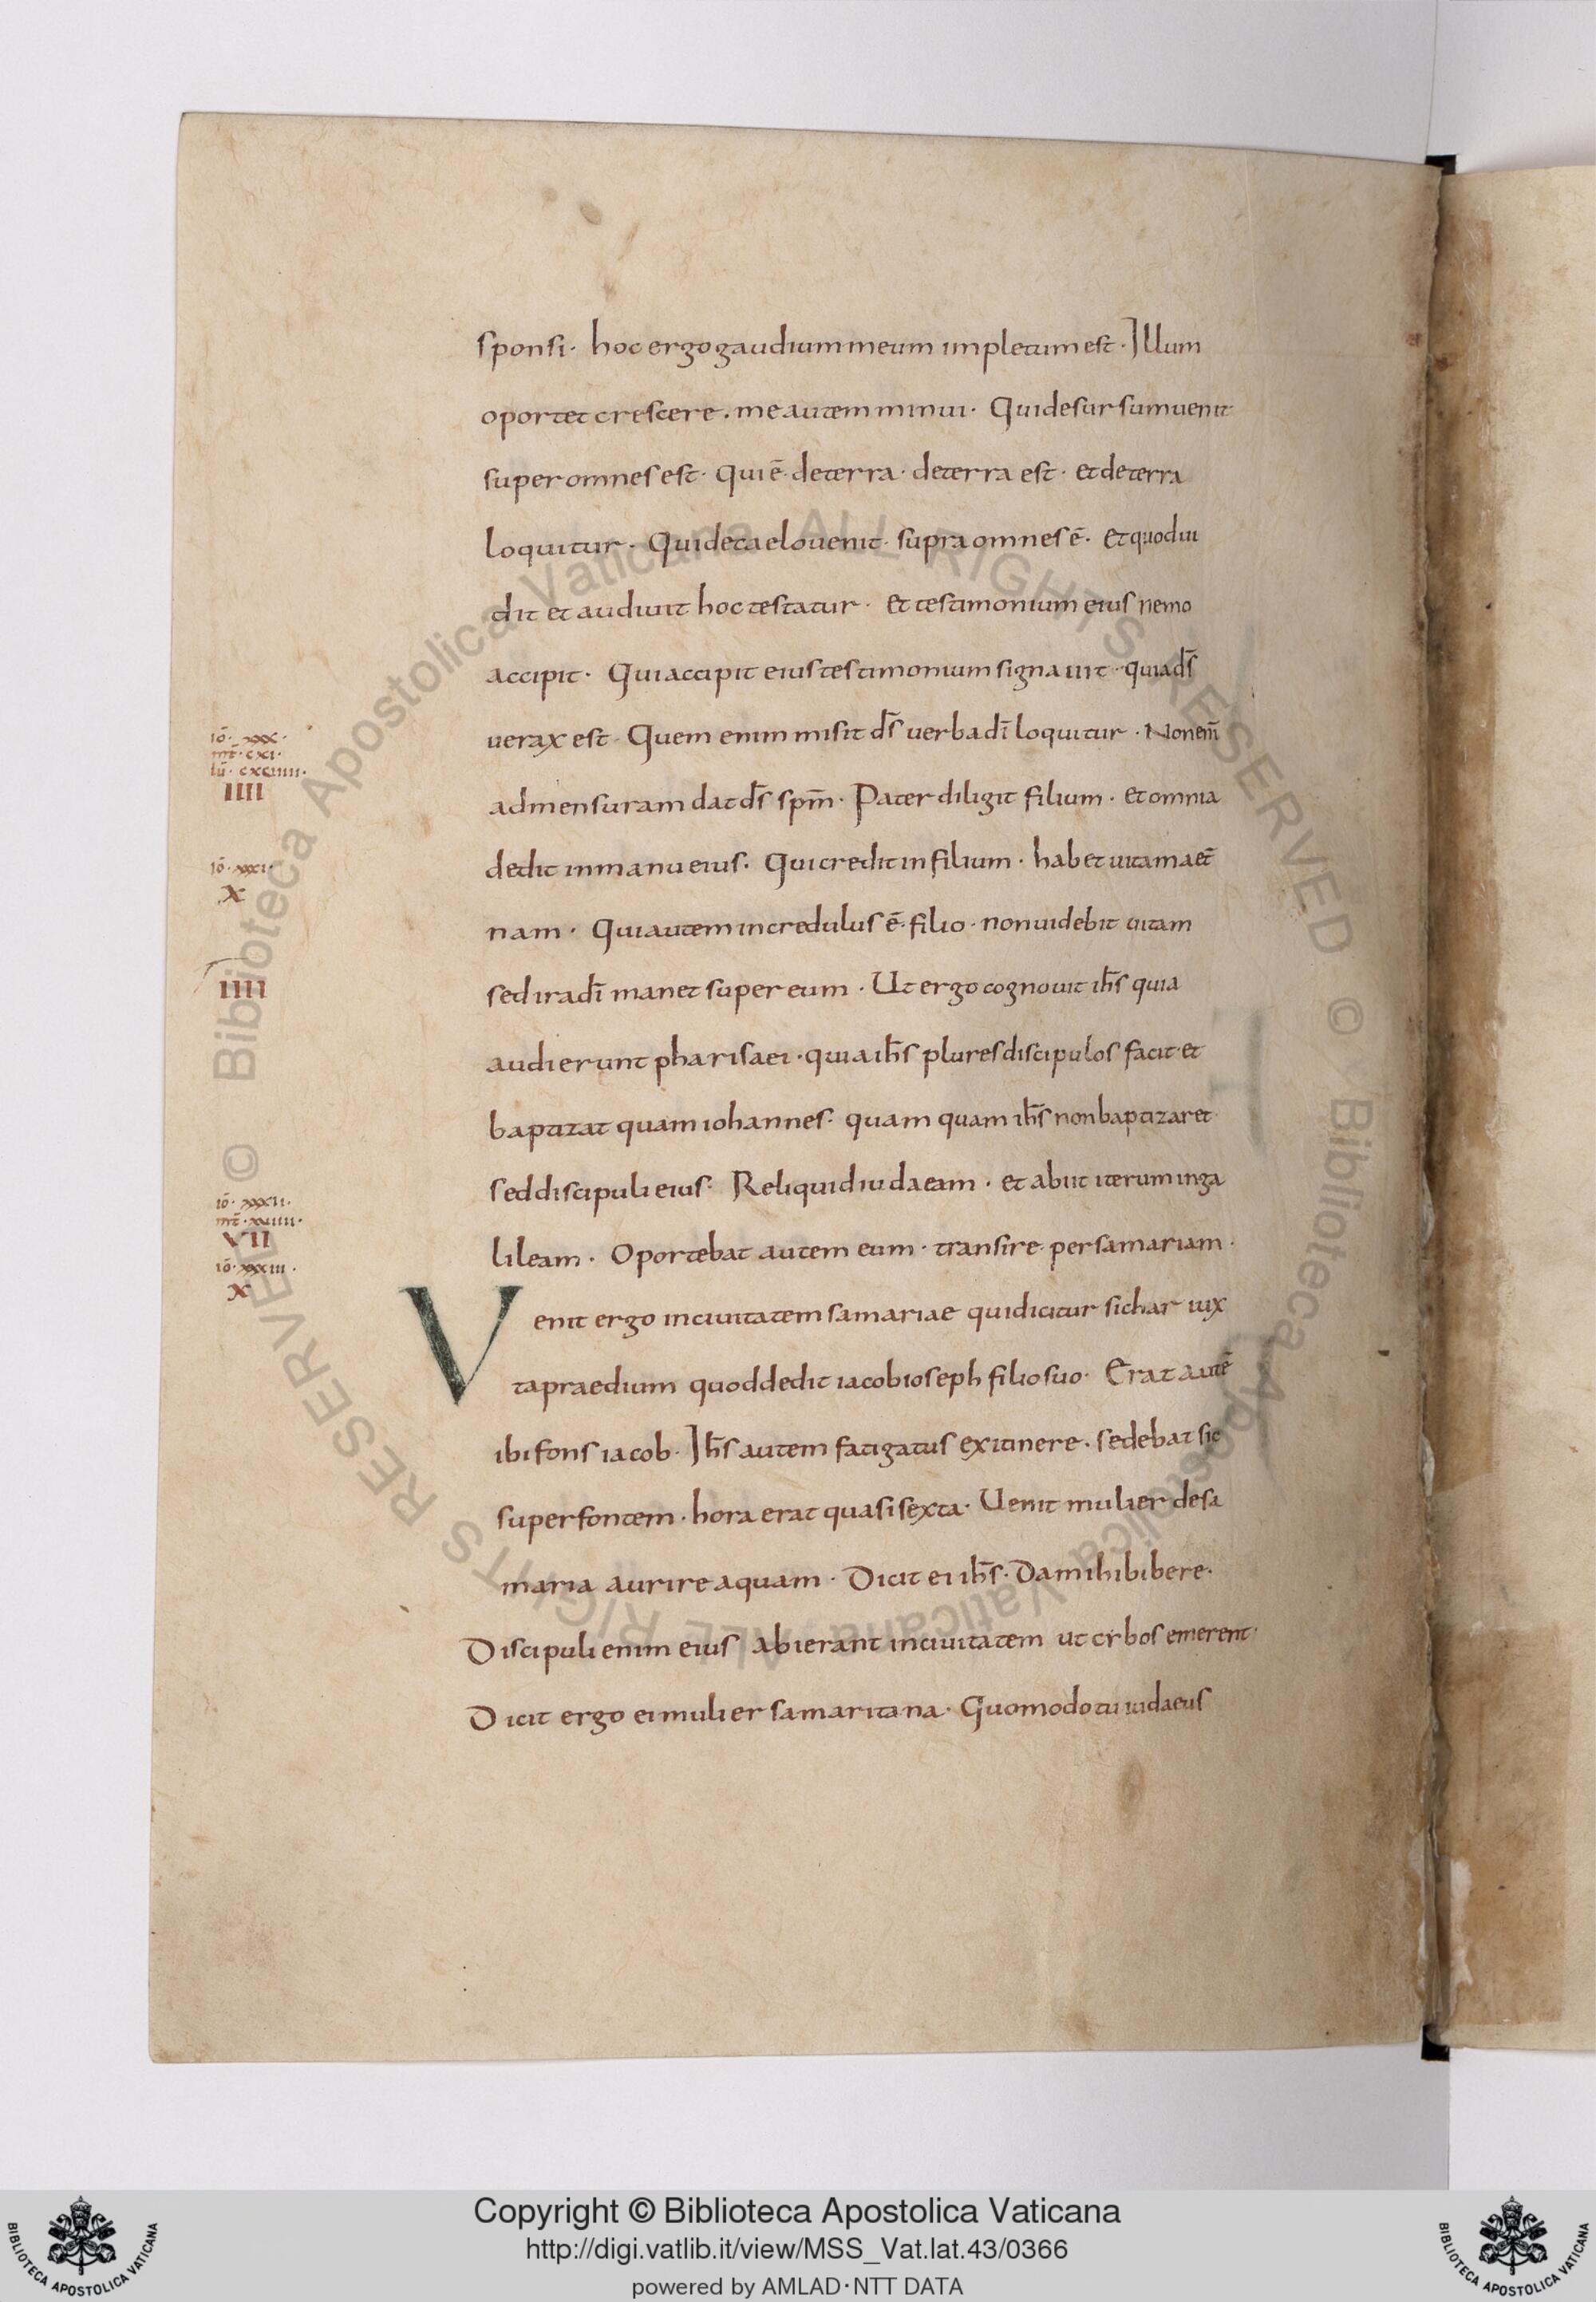 sponsi· hoc ergo gaudium meum impletum est· Illum
oportet crescere. me autem minui· Qui desursum uenit
super omnes est· qui ē de terra· de terra est· et de terra
loquitur· Qui de caelo uenit· supra omnes ē· et quod ui
dit et audiuit hoc testatur· et testimonium eius nemo
accipit· Qui accipit eius testimonium signauit· quia d̄s
uerax est· Quem enim misit d̄s uerba dī loquitur· Non enī
ad mensuram dat d̄s sp̄m· Pater diligit filium· et omnia
dedit in manu eius. Qui credit in filium· habet uitam aet̄
nam· Qui autem incredulus ē· filio· non uidebit uitam
sed ira dī manet super eum· Ut ergo cognouit ih̄s quia
audierunt pharisaei· quia ih̄s plures discipulos facit et
baptizat quam iohannes· quam quam ih̄s non baptizaret·
sed discipuli eius· Reliquid iudaeam· et abiit iterum in ga
lileam· Oportebat autem eum· transire· per samariam·
Venit ergo in ciuitatem samariae qui dicitur sichar iux
ta praedium quod dedit iacob ioseph filio suo· Erat autē
ibi fons iacob· Ih̄s autem fatigatus ex itinere. sedebat sic
super fontem· hora erat quasi sexta· Uenit mulier de sa
maria aurire aquam· Dicit ei ih̄s· Da mihi bibere·
Discipuli enim eius abierant in ciuitatem ut cybos emerent·
Dicit ergo ei mulier samaritana· Quomodo tu iudaeus
iō· xxx·
mt̄· cxi·
lū· cxcuiiii·
IIII
iō· xxxi·
X
IIII
iō· xxxii·
VII
iō· xxxiii·
X
© Biblioteca Apostolica Vaticana ALL RIGHTS RESERVED © Biblioteca Apostolica Vaticana ALL RIGHTS RESERVED
Copyright © Biblioteca Apostolica Vaticana
http://digi.vatlib.it/view/MSS_Vat.lat.43/0366
powered by AMLAD·NTT DATA
BIBLIOTECA APOSTOLICA VATICANA
BIBLIOTECA APOSTOLICA VATICANA